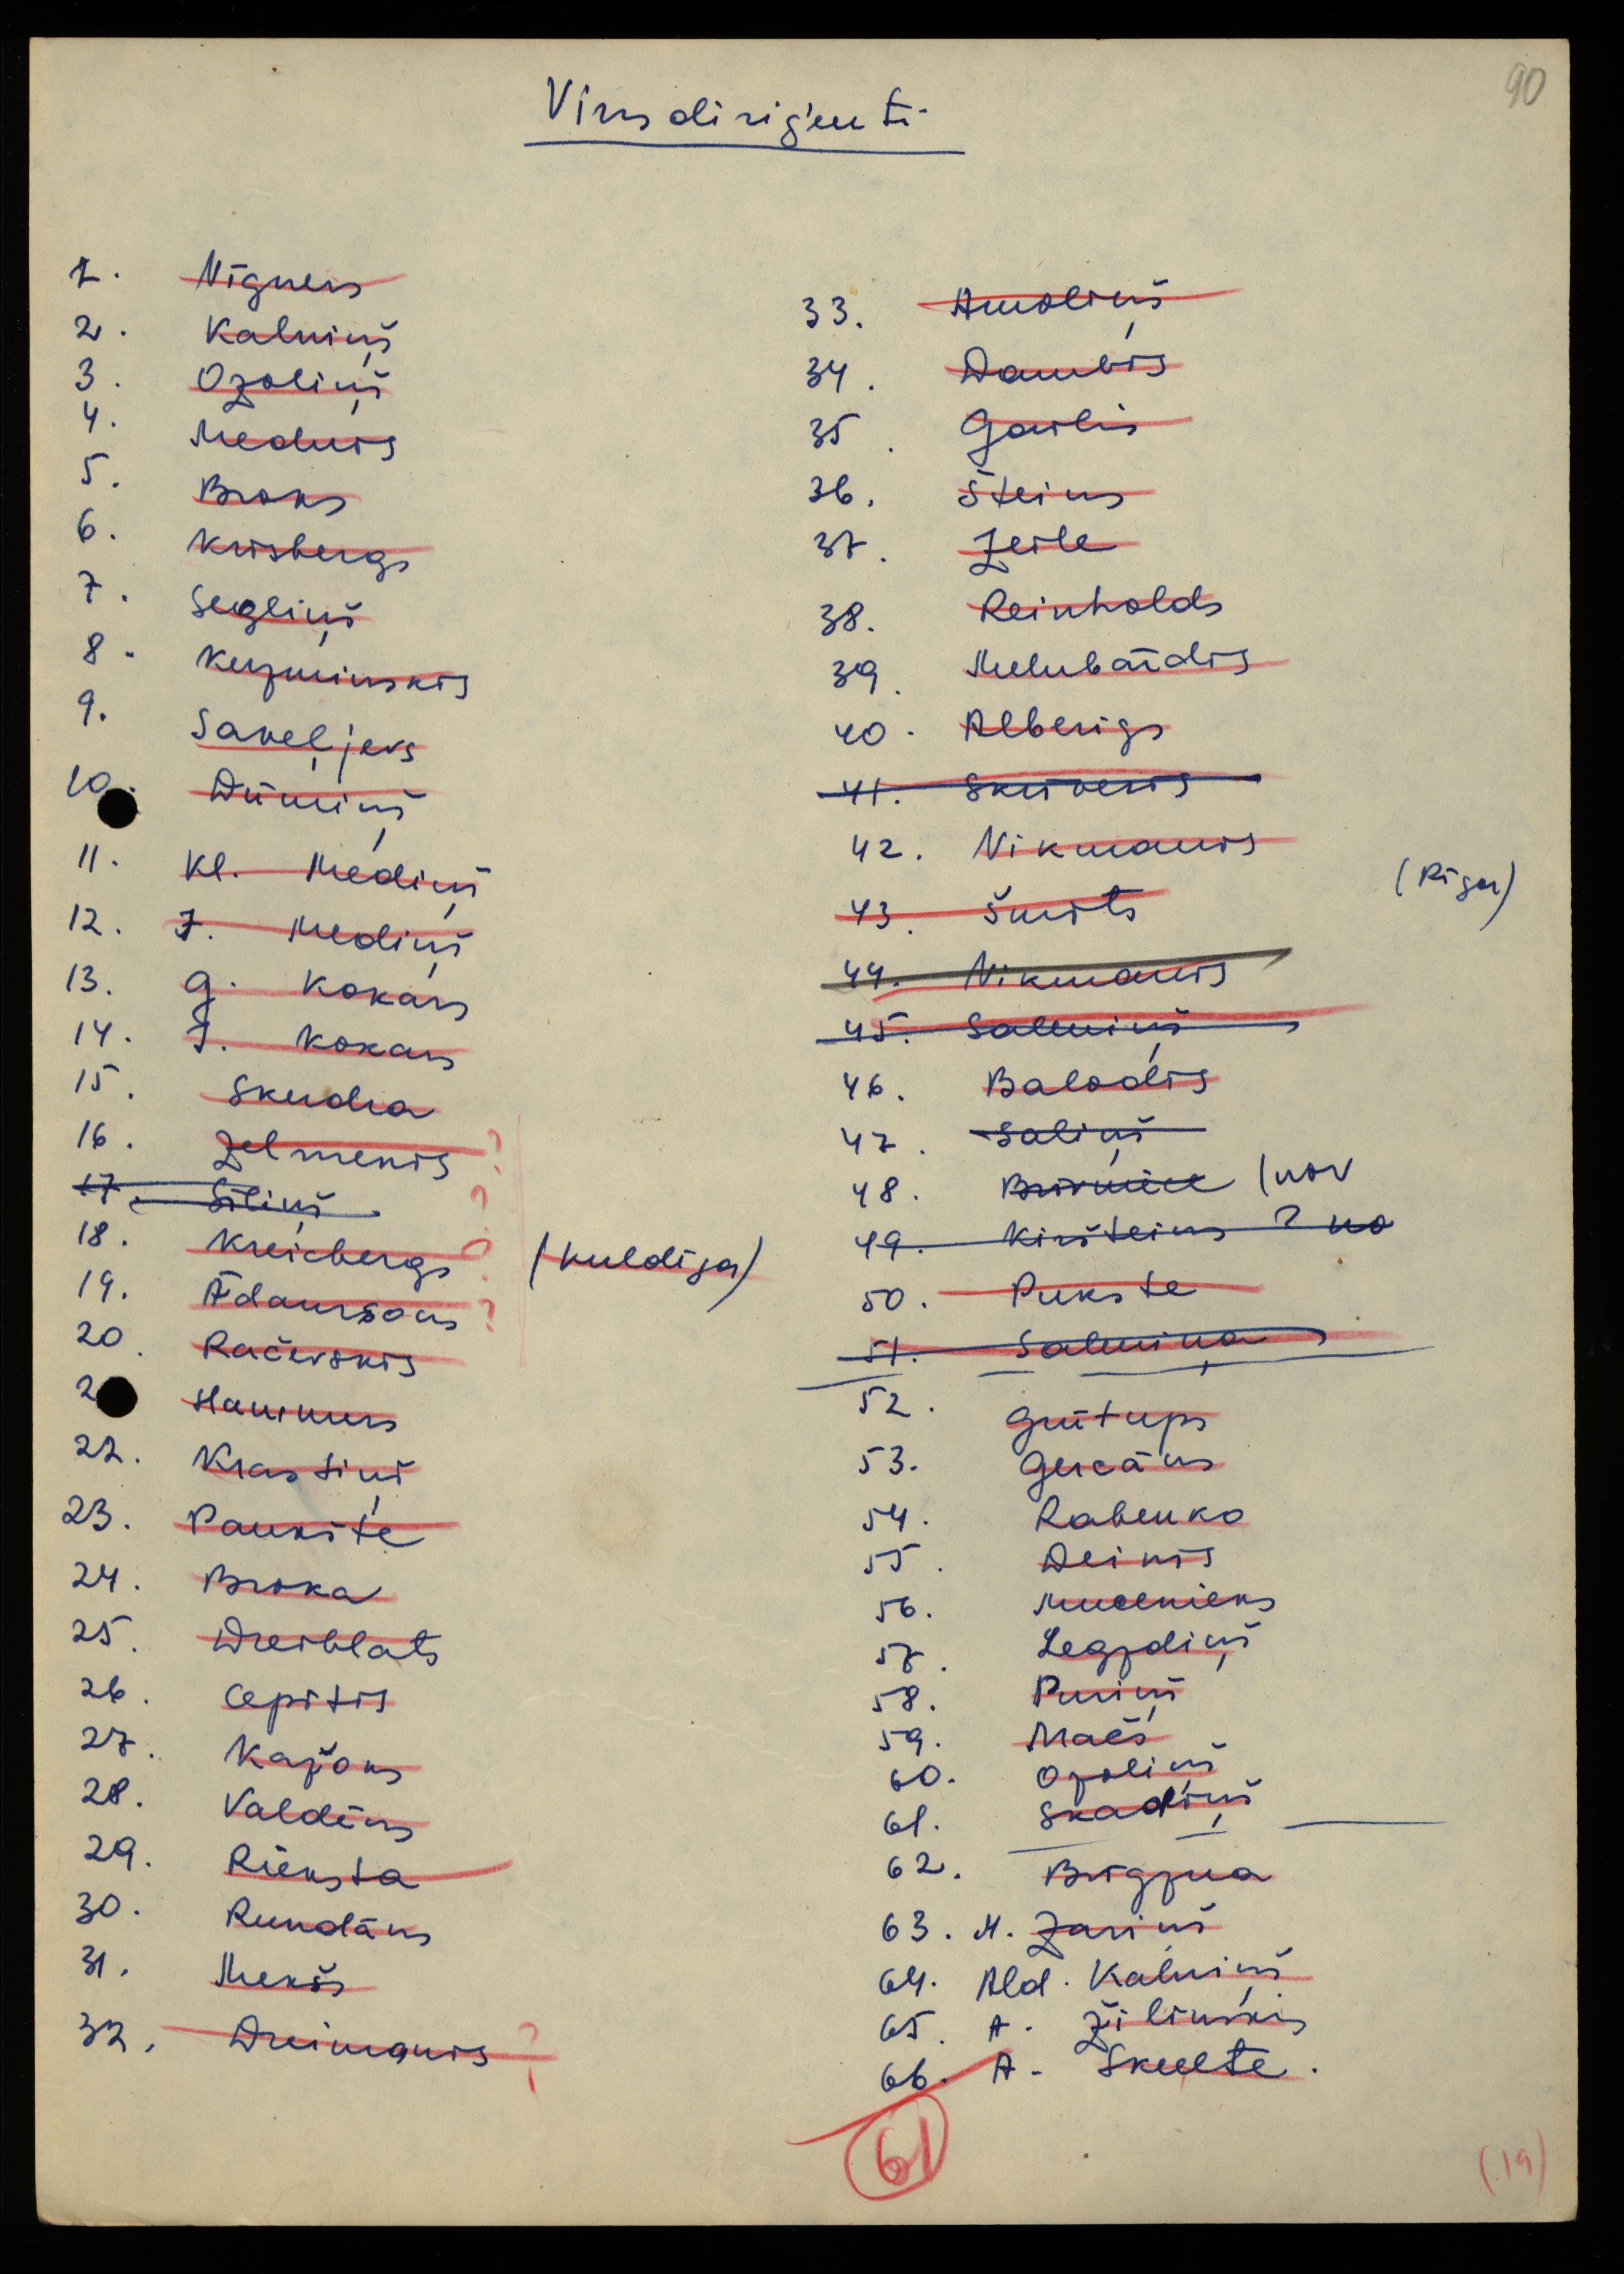 90
Virsdiriģenti
1. Vīgners
2. Kalniņš
3. Ozoliņš
4. Mednis
5. Broks
6. Krisbergs
7. Segliņš
8. Kuzminskis
9. Saveļjevs
10. Dūmiņš
11. Kl. Mediņš
12. J. Mediņš
13. G. Kokars
14. I. Kokars
15. Skudra
16. Zelmenis ?
17. Siliņš ?
18. Kreicbergs ? (Kuldīga)
19. Ādamsons ?
20. Račevskis
2 Hammers
22. Krastiņš
23. Paukšte
24. Broka
25. Dreiblats
26. Cepītis
27. Kažoks
28. Valdēns
29. Rieksta
30. Rundāns
31. Mekšs
32. Dreimanis ?
33. Amoliņš
34. Dambis
35. Gailis
36. Šteins
37. Zeile
38. Reinholds
39. Melnbārdis
40. Alberigs
41. Skrīveris
42. Vikmanis
(Rīga)
43. Šmits
44. Vikmanis
45. Salmiņš
46. Balodis
47. Saliņš
48. Brīvniece (nov
49. Kiršteins ? no
50. Pukste
51. Salmiņa
52. Grūtups
53. Gercāns
54. Rabenko
55. Deinis
56. Mucenieks
57. Legzdiņš
58. Puriņš
59. Mačs
60. Ozoliņš
61. Skadiņš
62. Brigzna
63. M. Zariņš
64. Ald. Kalniņš
65. A. Žilinskis
66. A. Skulte.
61
(19)